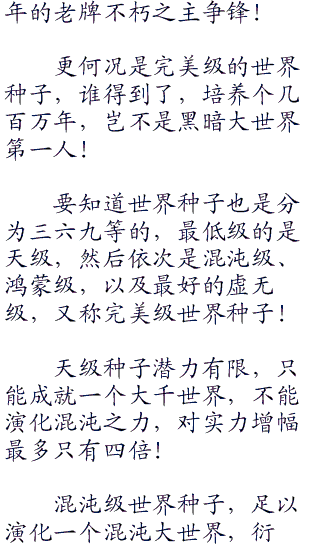 年的老牌不朽之主争锋！
更何况是完美级的世界
种子，谁得到了，培养个几
百万年，岂不是黑暗大世界
第一人！
要知道世界种子也是分
为三六九等的，最低级的是
天级，然后依次是混沌级、
鸿蒙级，以及最好的虚无
级，又称完美级世界种子！
天级种子潜力有限，只
能成就一个大千世界，不能
演化混沌之力，对实力增幅
最多只有四倍！
混沌级世界种子，足以
演化一个混沌大世界，衍